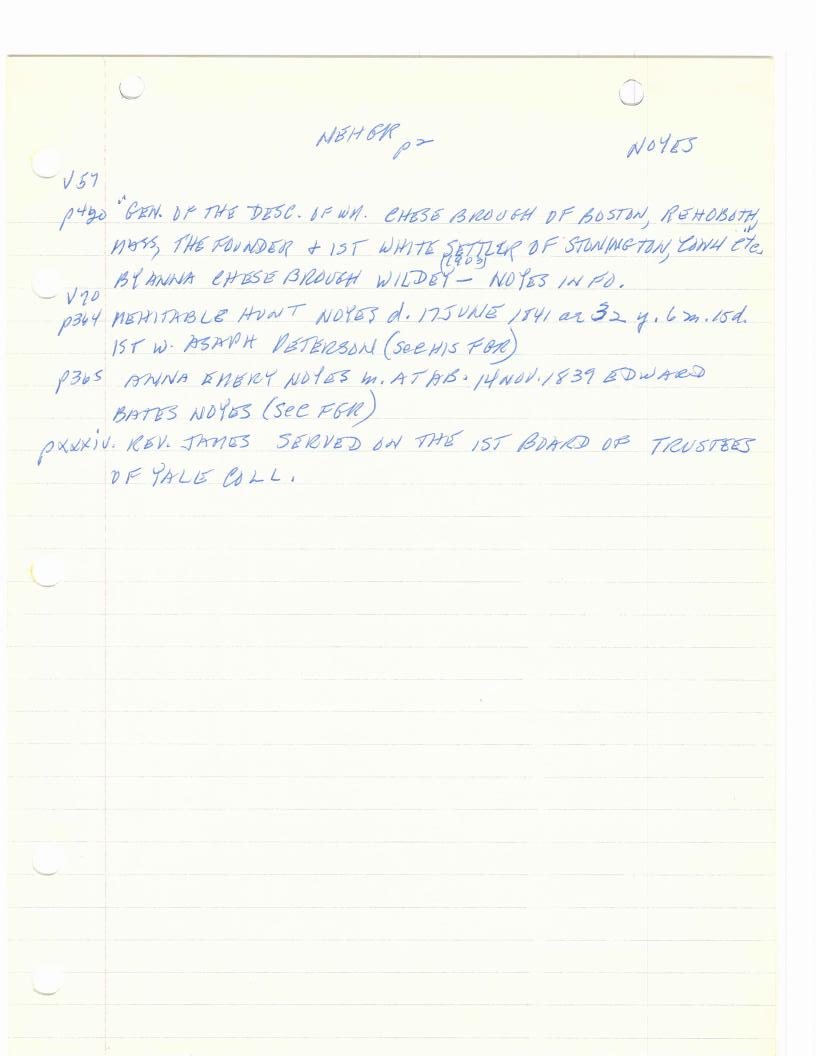 NEHGR p2 NOYES
V57
p420 "GEN. OF THE DESC. OF WM. CHESEBROUGH OF BOSTON, REHOBOTH,
MASS, THE FOUNDER + 1ST WHITE SETTLER OF STONINGTON, CONN etc"
(1903)
BY ANNA CHESEBROUGH WILDEY — NOYES IN FO.
V90
p364 MEHITABLE HUNT NOYES d. 17 JUNE 1841 ae 32 y. 6 m. 15d.
1ST W. ASAPH PETERSON (See HIS FGR)
p365 ANNA EMERY NOYES m. AT AB. 14 NOV. 1839 EDWARD
BATES NOYES (SEE FGR)
pxxxiv. REV. JAMES SERVED ON THE 1ST BOARD OF TRUSTEES
OF YALE COLL.